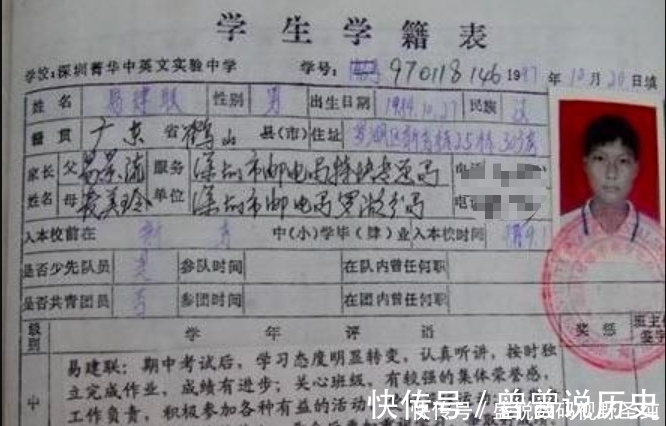 学生学籍表
学校:深圳菁华中英文实验中学 学号: 970118146 1997年10月20日填
姓名 易建联 性别 男 出生日期 1984.10.27 民族 汉
籍贯 广东省鹤山县(市) 住址 罗湖区
家长姓名 父 易景流 服务单位 深圳市邮电局 电话
母 麦美玲 深圳市邮电局罗湖分局 电话
入本校前在 中(小)学毕(肆)业入本校时间
是否少先队员 是 参队时间 在队内曾任何职
是否共青团员 否 参团时间 在团内曾任何职
级别 学年评语 奖惩 班主任签字
中 易建联:期中考试后,学习态度明显转变,认真听讲,按时独
立完成作业,成绩有进步;关心班级,有较强的集体荣誉感,
工作负责,积极参加各种有益的活动
快传号/曾曾说历史